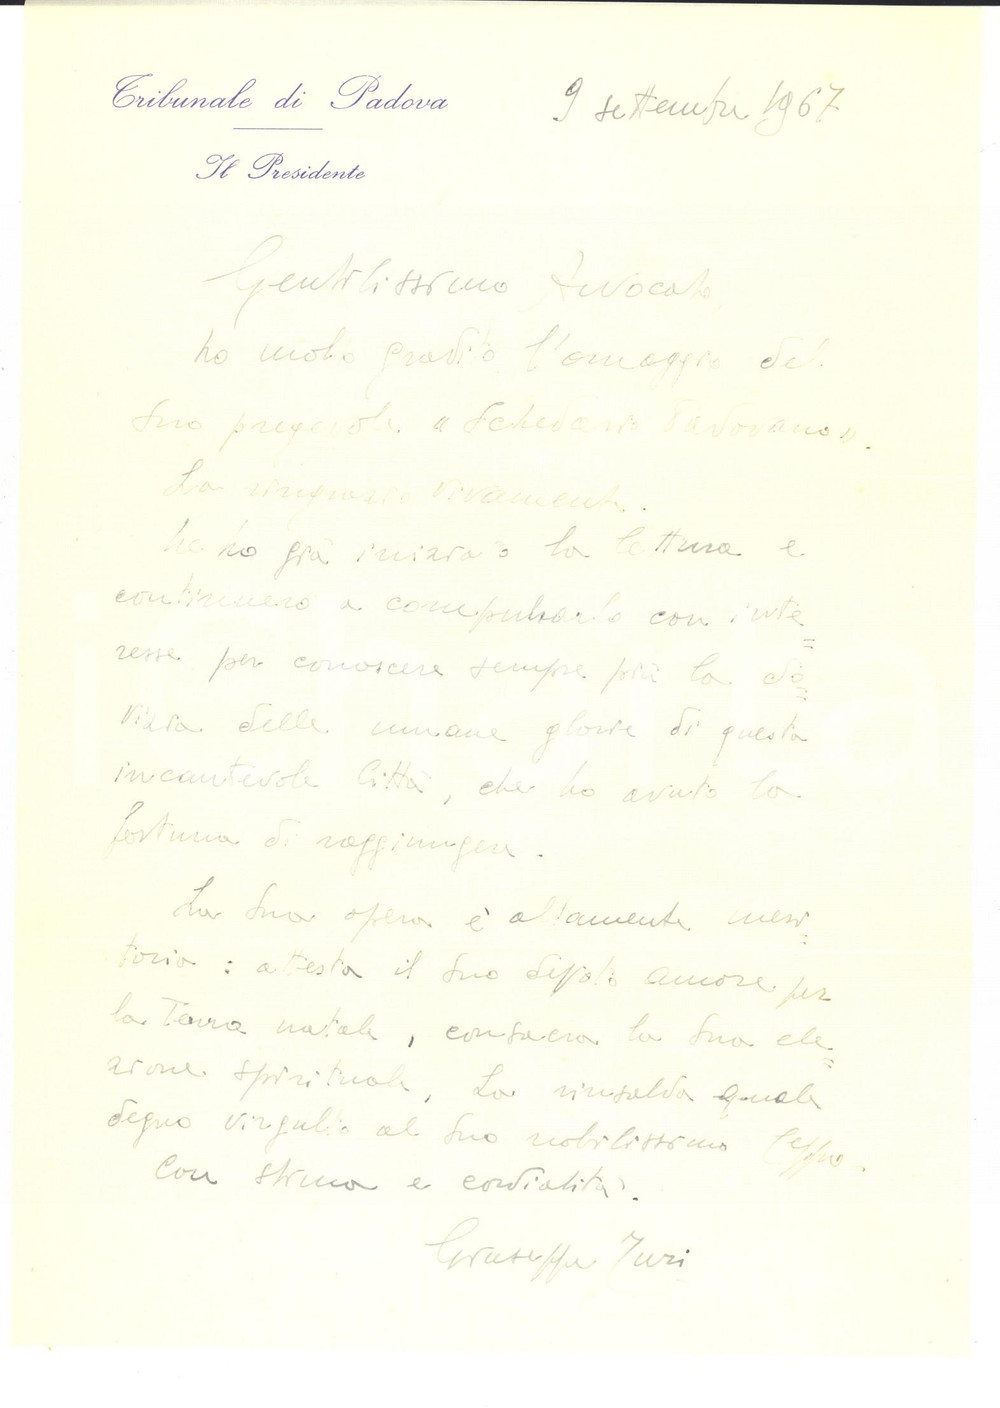 Tribunale di Padova
Il Presidente
9 settembre 1967
Gentilissimo Avvocato,
ho molto gradito l'omaggio del
Suo pregevole "Schedario Padovano".
La ringrazio vivamente.
Ne ho già iniziato la lettura e
continuerò a compulsarlo con inte=
resse per conoscere sempre più la do=
vizia delle umane glorie di questa
incantevole Città, che ho avuto la
fortuna di raggiungere.
La Sua opera è altamente meri=
toria: attesta il Suo amore per
la Terra natale, consacra la Sua ele=
zione spirituale, La rinsalda quale
degno virgulto al Suo nobilissimo Ceppo.
Con stima e cordialità.
Giuseppe Juri